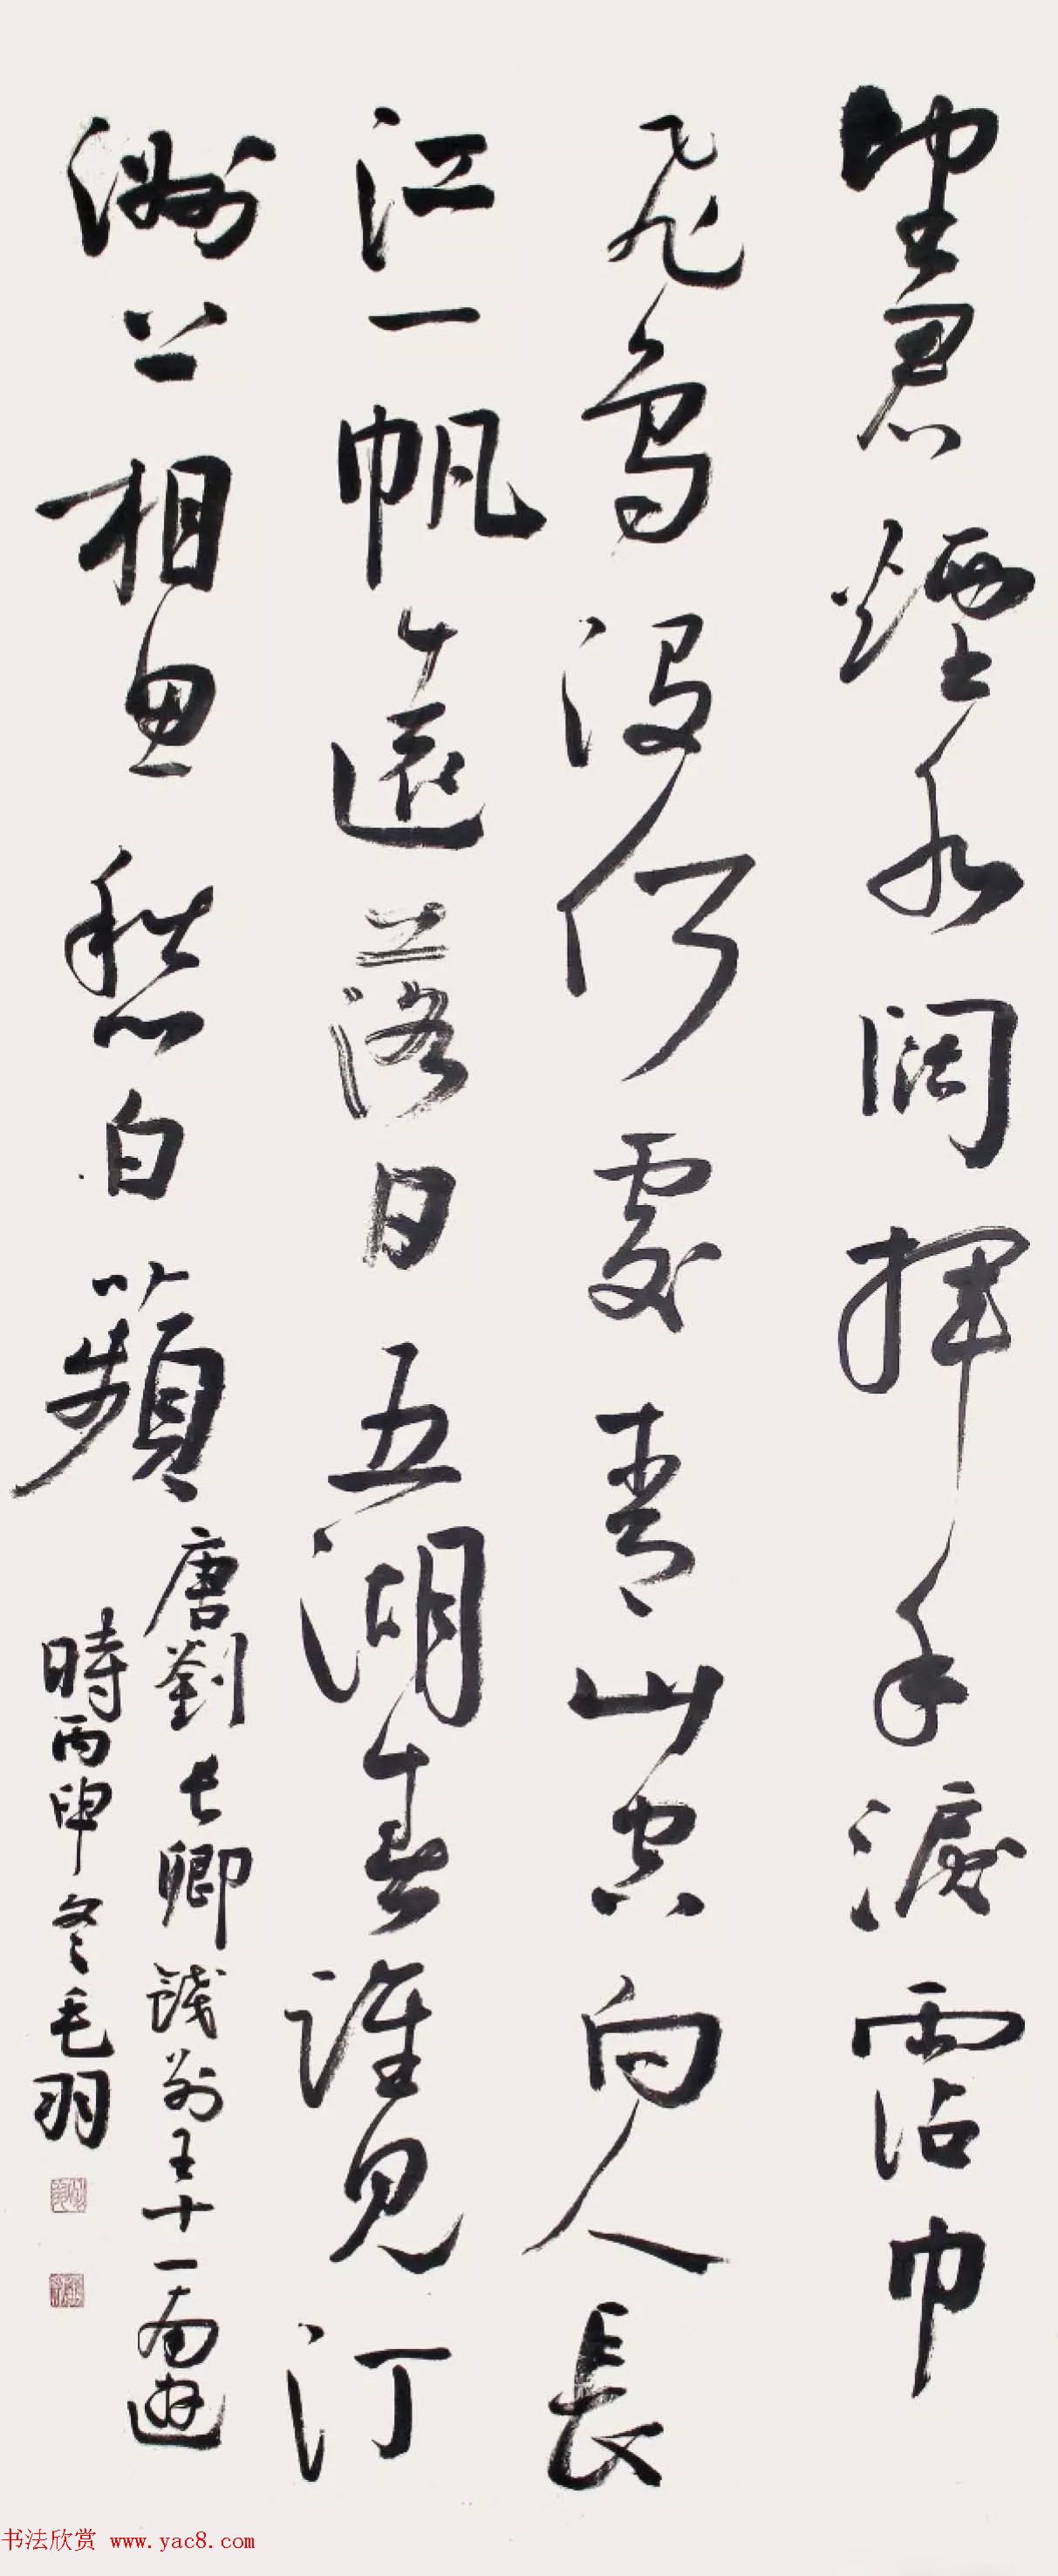 望君煙水闊揮手淚霑巾
飛鳥沒何處青山空向人長
江一帆遠落日五湖春誰見汀
洲上相思愁白蘋
唐劉長卿餞別王十一南遊
時丙申冬毛羽
书法欣赏 www.yac8.com